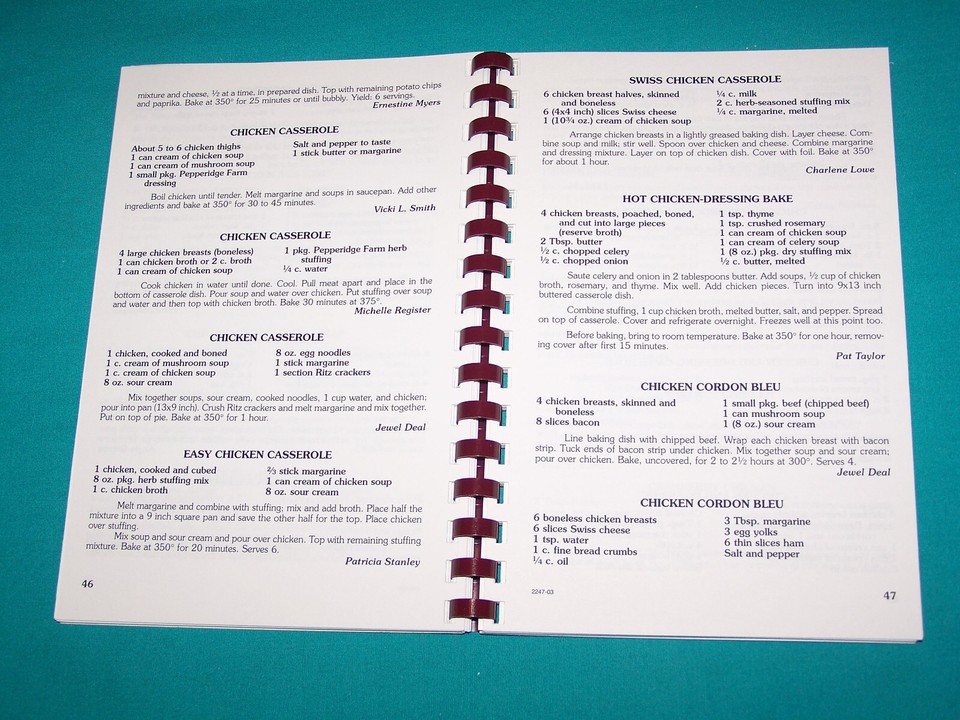 mixture and cheese, ½ at a time, in prepared dish. Top with remaining potato chips
and paprika. Bake at 350° for 25 minutes or until bubbly. Yield: 6 servings.
Ernestine Myers
CHICKEN CASSEROLE
About 5 to 6 chicken thighs
1 can cream of chicken soup
1 can cream of mushroom soup
1 small pkg. Pepperidge Farm
dressing
Salt and pepper to taste
1 stick butter or margarine
Boil chicken until tender. Melt margarine and soups in saucepan. Add other
ingredients and bake at 350° for 30 to 45 minutes.
Vicki L. Smith
CHICKEN CASSEROLE
4 large chicken breasts (boneless)
1 can chicken broth or 2 c. broth
1 can cream of chicken soup
1 pkg. Pepperidge Farm herb
stuffing
¼ c. water
Cook chicken in water until done. Cool. Pull meat apart and place in the
bottom of casserole dish. Pour soup and water over chicken. Put stuffing over soup
and water and then top with chicken broth. Bake 30 minutes at 375°.
Michelle Register
CHICKEN CASSEROLE
1 chicken, cooked and boned
1 c. cream of mushroom soup
1 c. cream of chicken soup
8 oz. sour cream
8 oz. egg noodles
1 stick margarine
1 section Ritz crackers
Mix together soups, sour cream, cooked noodles, 1 cup water, and chicken;
pour into pan (13x9 inch). Crush Ritz crackers and melt margarine and mix together.
Put on top of pie. Bake at 350° for 1 hour.
Jewel Deal
EASY CHICKEN CASSEROLE
1 chicken, cooked and cubed
8 oz. pkg. herb stuffing mix
1 c. chicken broth
⅔ stick margarine
1 can cream of chicken soup
8 oz. sour cream
Melt margarine and combine with stuffing; mix and add broth. Place half the
mixture into a 9 inch square pan and save the other half for the top. Place chicken
over stuffing.
Mix soup and sour cream and pour over chicken. Top with remaining stuffing
mixture. Bake at 350° for 20 minutes. Serves 6.
Patricia Stanley
46
SWISS CHICKEN CASSEROLE
6 chicken breast halves, skinned
and boneless
6 (4x4 inch) slices Swiss cheese
1 (10¾ oz.) cream of chicken soup
¼ c. milk
2 c. herb-seasoned stuffing mix
¼ c. margarine, melted
Arrange chicken breasts in a lightly greased baking dish. Layer cheese. Com-
bine soup and milk; stir well. Spoon over chicken and cheese. Combine margarine
and dressing mixture. Layer on top of chicken dish. Cover with foil. Bake at 350°
for about 1 hour.
Charlene Lowe
HOT CHICKEN-DRESSING BAKE
4 chicken breasts, poached, boned,
and cut into large pieces
(reserve broth)
2 Tbsp. butter
½ c. chopped celery
½ c. chopped onion
1 tsp. thyme
1 tsp. crushed rosemary
1 can cream of chicken soup
1 can cream of celery soup
1 (8 oz.) pkg. dry stuffing mix
½ c. butter, melted
Saute celery and onion in 2 tablespoons butter. Add soups, ½ cup of chicken
broth, rosemary, and thyme. Mix well. Add chicken pieces. Turn into 9x13 inch
buttered casserole dish.
Combine stuffing, 1 cup chicken broth, melted butter, salt, and pepper. Spread
on top of casserole. Cover and refrigerate overnight. Freezes well at this point too.
Before baking, bring to room temperature. Bake at 350° for one hour, remov-
ing cover after first 15 minutes.
Pat Taylor
CHICKEN CORDON BLEU
4 chicken breasts, skinned and
boneless
8 slices bacon
1 small pkg. beef (chipped beef)
1 can mushroom soup
1 (8 oz.) sour cream
Line baking dish with chipped beef. Wrap each chicken breast with bacon
strip. Tuck ends of bacon strip under chicken. Mix together soup and sour cream;
pour over chicken. Bake, uncovered, for 2 to 2½ hours at 300°. Serves 4.
Jewel Deal
CHICKEN CORDON BLEU
6 boneless chicken breasts
6 slices Swiss cheese
1 tsp. water
1 c. fine bread crumbs
¼ c. oil
3 Tbsp. margarine
3 egg yolks
6 thin slices ham
Salt and pepper
2247-03
47